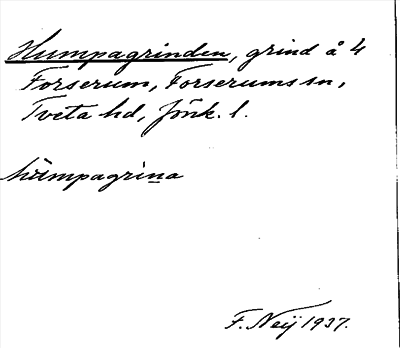 Humpagrinden, grind å 4
Forserum, Forserums sn,
Tveta hd, Jönk. l.
hùmpagrin̲a
F. Neij 1937.